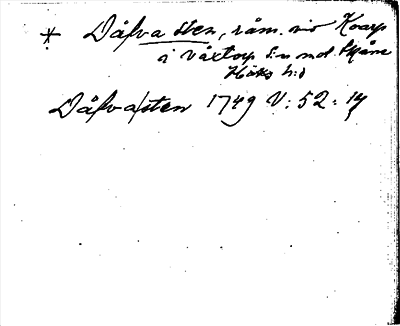 * Dåfva sten, råm. vid Koarp
i Våxtorp s:n md. Skåne
Höks h:d
Dåfvasten 1749 V: 52: 14